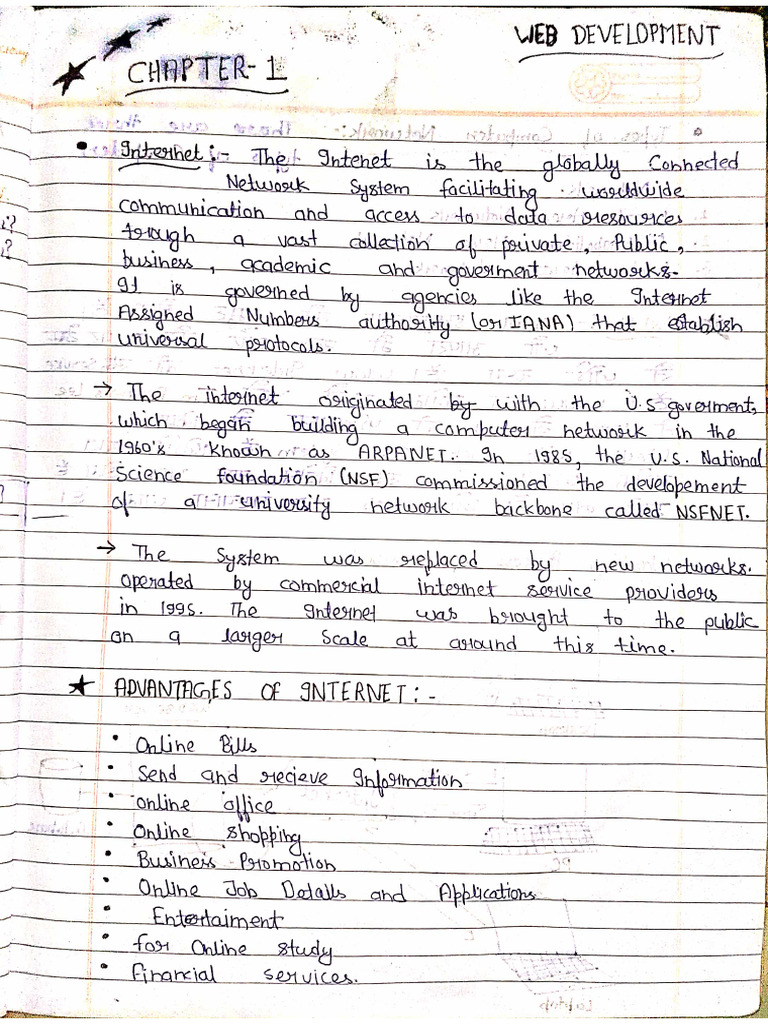 WEB DEVELOPMENT
CHAPTER-1
• Internet :- The Intenet is the globally Connected
Network System facilitating worldwide
communication and access to data resources
trough a vast collection of private, Public,
business, academic and goverment networks.
It is governed by agencies like the Internet
Assigned Numbers authority (or IANA) that establish
universal protocols.
→ The internet originated by with the U.S goverment,
which began building a computer network in the
1960's known as ARPANET. In 1985, the U.S. National
Science foundation (NSF) commissioned the developement
of a university network backbone called NSFNET.
→ The System was replaced by new networks.
operated by commercial internet service providers
in 1995. The Internet was brought to the public
on a larger Scale at around this time.
★ ADVANTAGES OF INTERNET :-
• Online Bills
• Send and recieve Information
• online office
• Online shopping
• Business Promotion
• Online Job Details and Applications
• Entertaiment
• for Online study
• financial services.